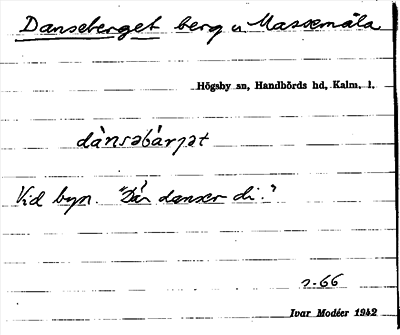 Danseberget berg u Massemåla
Högsby sn, Handbörds hd, Kalm. l.
dànsəbárjət
Vid byn. "Där danser di."
2-66
Ivar Modéer 1942